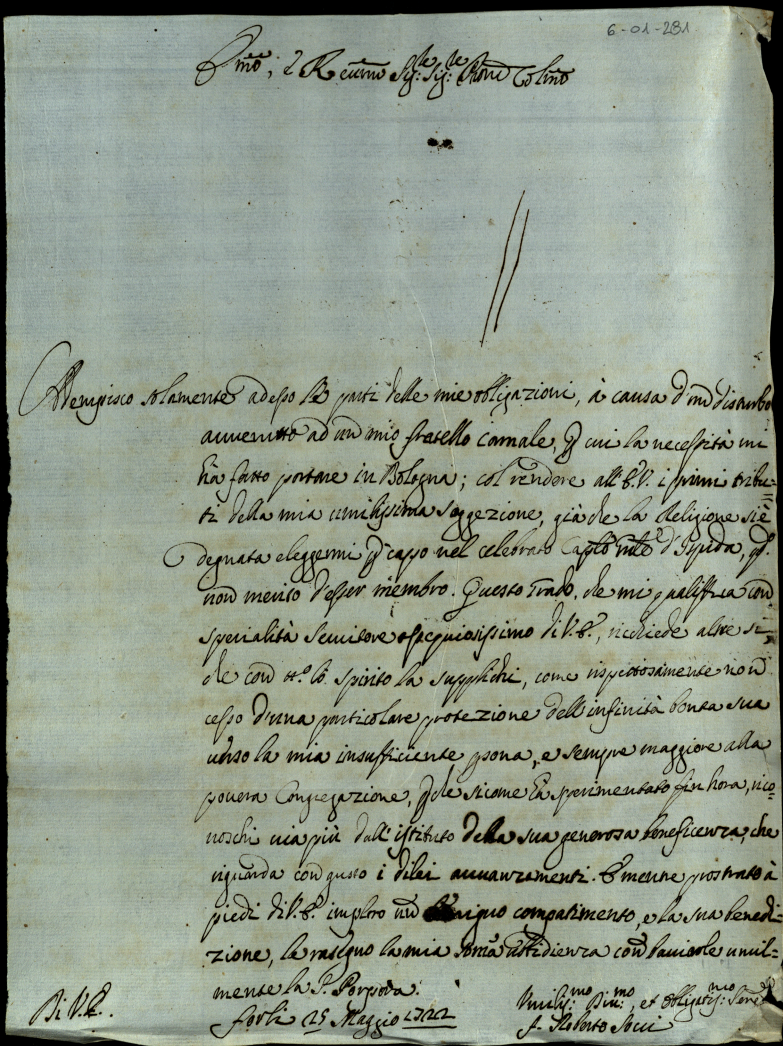 6-01-281
Emo, e Rmo Sig.r Sig.r Prone Colmo
Adempisco solamente adesso le parti delle mie obligazioni, à causa d'un disturbo
auuenuto ad un mio fratello carnale, p cui la necessità mi
hà fatto portare in Bologna; col rendere all'E.V. i primi tribu=
ti della mia umilissima soggezione, già che la Religione si è
degnata eleggermi p cappo nel celebrato d'
non merito d'esser membro. Questo che mi qualifica con
specialità Seruitore ossequiosissimo di V.E., richiede altre si
che con tt.o lo spirito la supplichi, come rispettosamente non
cesso d'una particolare protezione dell'infinità bontà sua
uerso la mia insufficiente psona, e sempre maggiore alla
pouera Congregazione, p che sicome hà sperimentato fin hora, rico=
noschi uia più dall'istituto della sua generosa beneficenza, che
riguarda con gusto i dilei auuanzamenti. E mentre prostrato à
piedi di V.E. imploro un benigno compatimento, e la sua benedi=
zione, le rasegno la mia somã ubidienza con baciarle umil=
mente la S. Porpora.
Di V.E.
Forlì 25 Maggio 1722
Umiliss.mo Diu.mo, et obligatis.mo Serue
F. Roberto